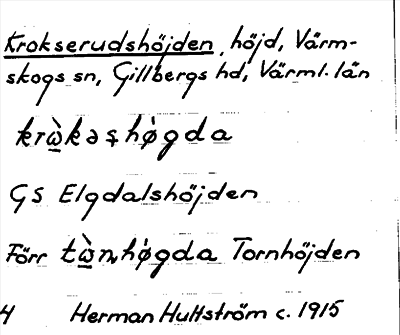 Krokserudshöjden, höjd, Värm-
skogs sn, Gillbergs hd, Värml. län
krὼ̲kəȿhø̀gda
GS Elgdalshöjden
Förr tὼ̲ɳhø̀gda Tornhöjden
Herman Hultström c. 1915